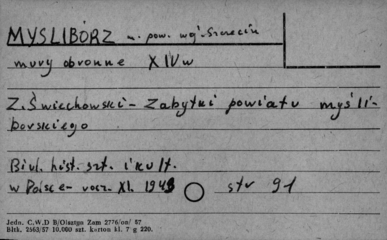 MYŚLIBÓRZ m. pow. woj. Szczecin
mury obronne XIV w
Z. Świechowski - Zabytki powiatu myśli-
borskiego
Biul. hist. szt. i kult.
w Polsce - rocz. XI. 1949 str 91
Jedn. C.W.D B/Olsztyn Zam 2776/on/ 57
Bltk. 2563/57 10.000 szt. karton kl. 7 g 220.